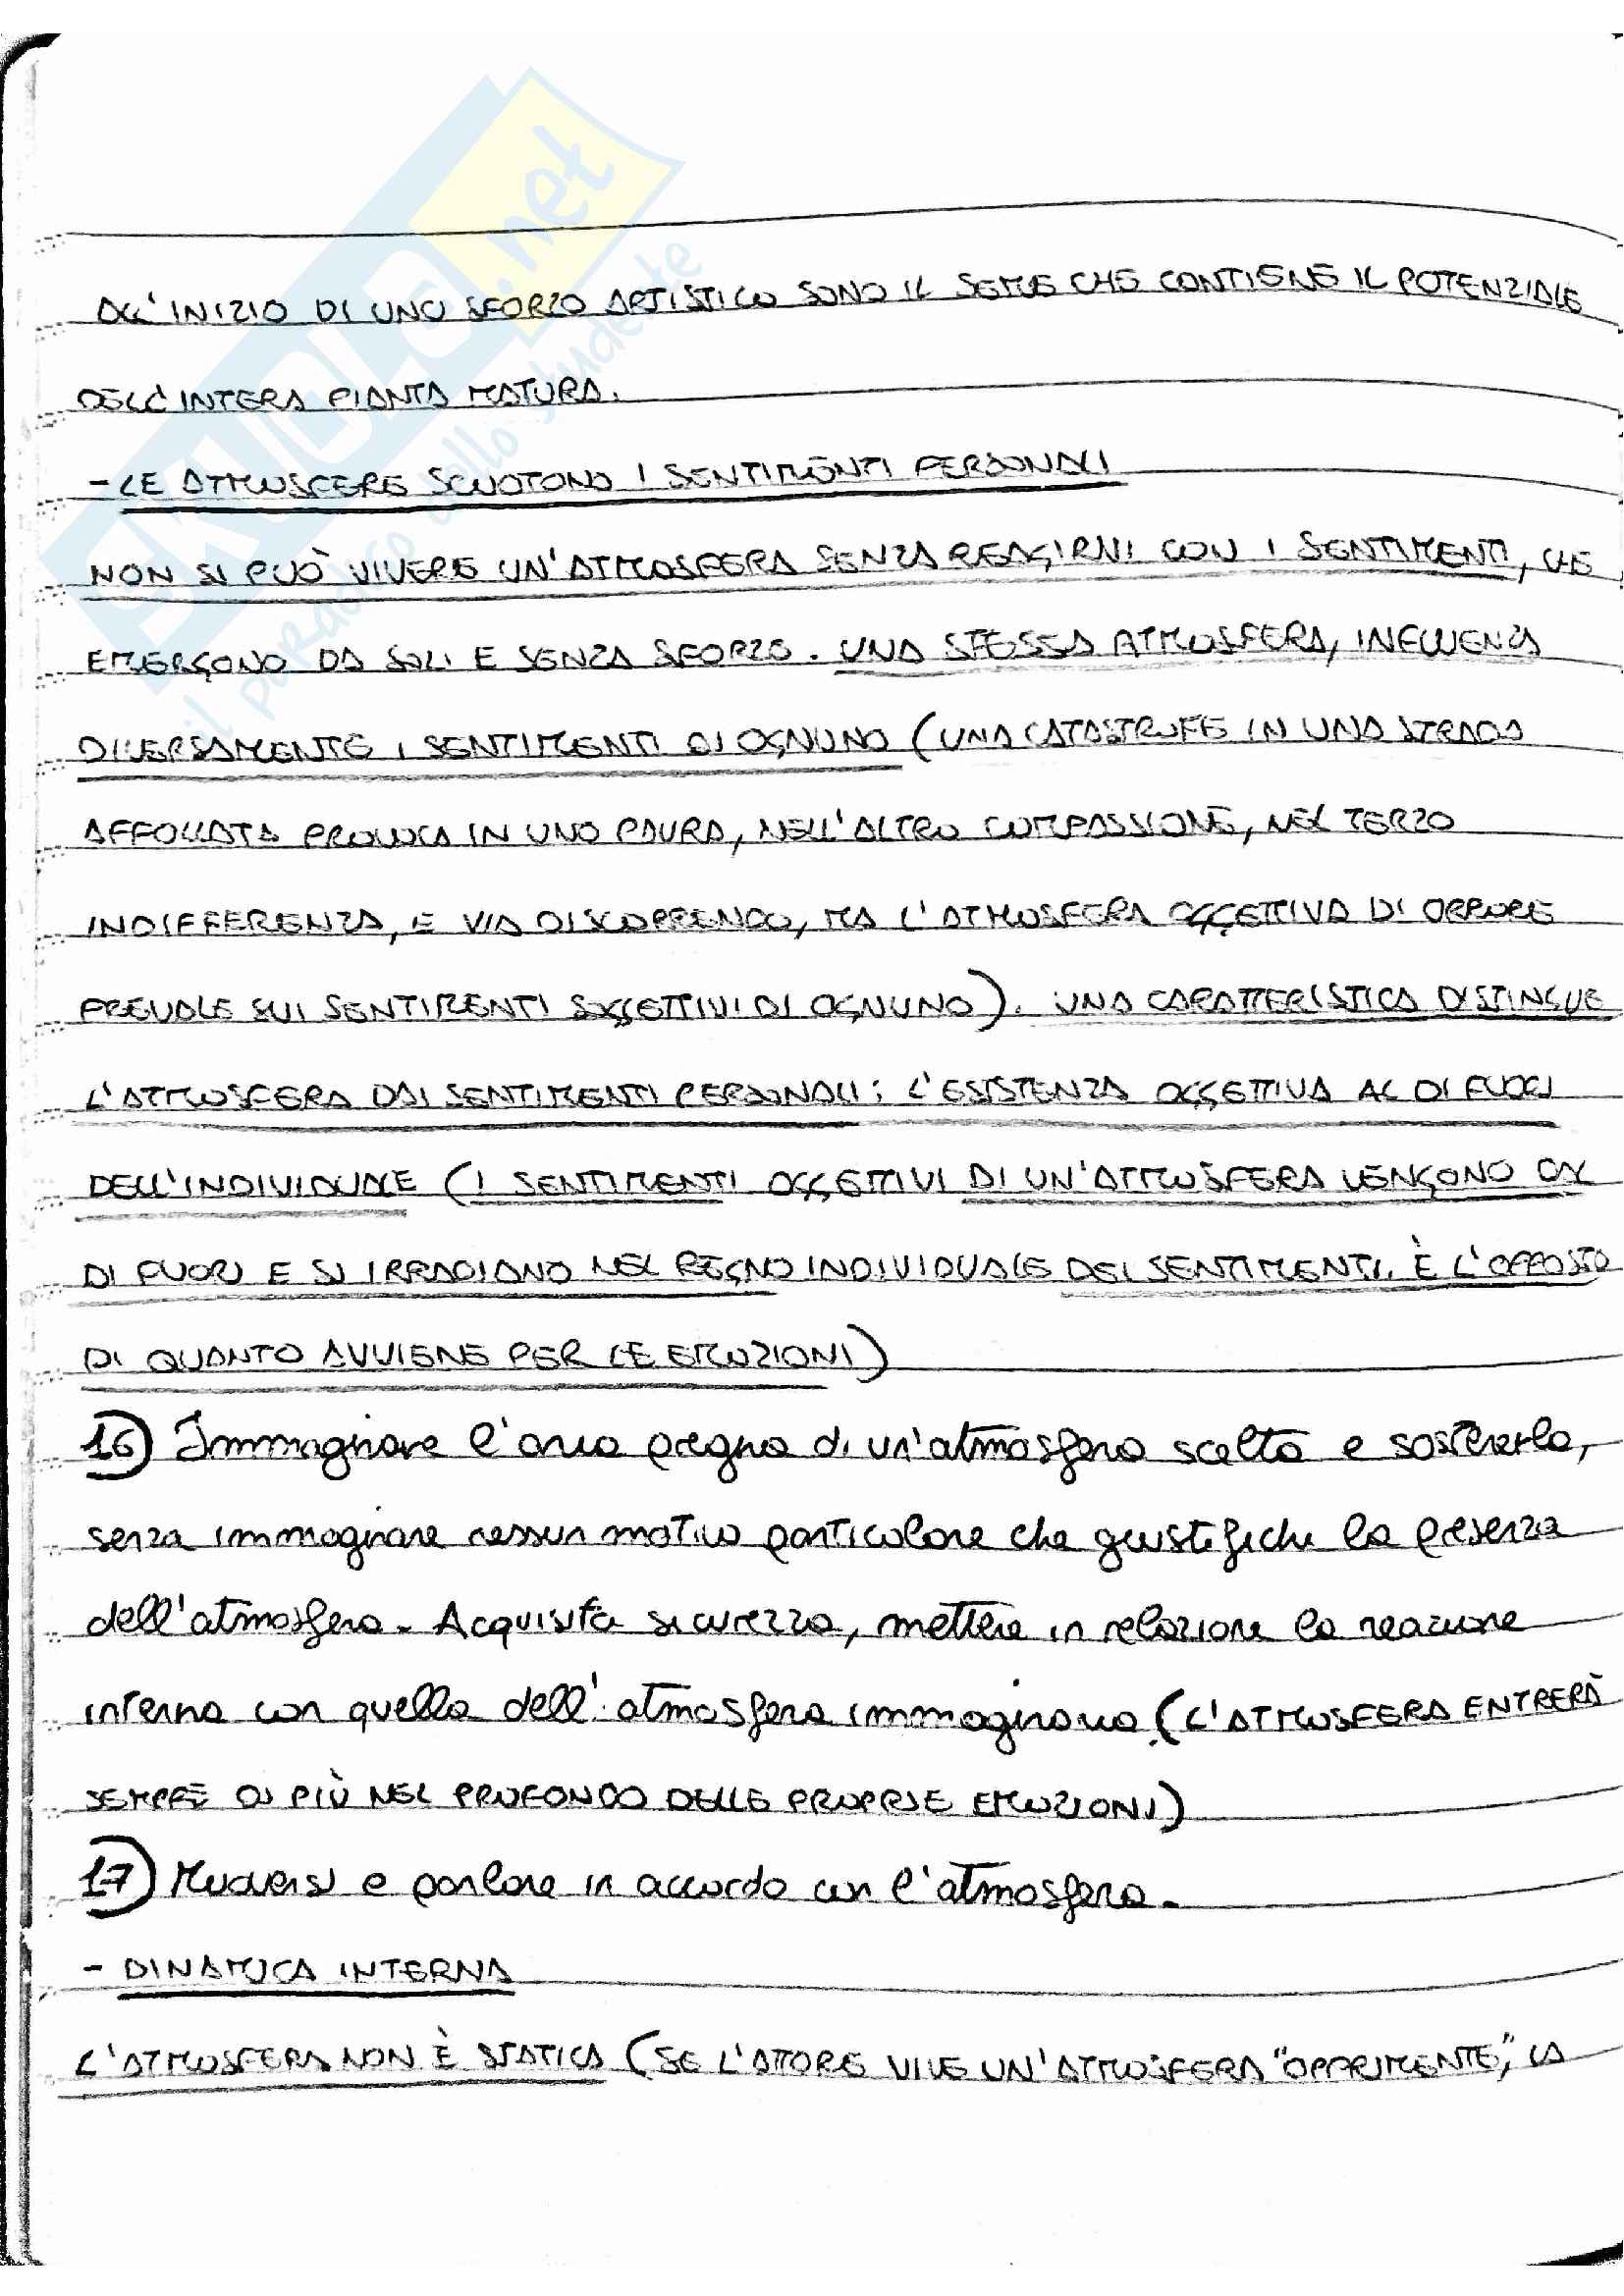 ALL'INIZIO DI UNO SFORZO ARTISTICO SONO IL SEME CHE CONTIENE IL POTENZIALE
DELL'INTERA PIANTA MATURA.
- LE ATMOSFERE SCUOTONO I SENTIMENTI PERSONALI
NON SI PUÒ VIVERE UN'ATMOSFERA SENZA REAGIRNI CON I SENTIMENTI, CHE
EMERGONO DA SOLI E SENZA SFORZO. UNA STESSA ATMOSFERA, INFLUENZA
DIVERSAMENTE I SENTIMENTI DI OGNUNO (UNA CATASTROFE IN UNA STRADA
AFFOLLATA PROVOCA IN UNO PAURA, NELL'ALTRO COMPASSIONE, NEL TERZO
INDIFFERENZA, E VIA DISCORRENDO, MA L'ATMOSFERA OGGETTIVA DI ORRORE
PREVALE SUI SENTIMENTI SOGGETTIVI DI OGNUNO). UNA CARATTERISTICA DISTINGUE
L'ATMOSFERA DAI SENTIMENTI PERSONALI: L'ESISTENZA OGGETTIVA AL DI FUORI
DELL'INDIVIDUALE (I SENTIMENTI OGGETTIVI DI UN'ATMOSFERA VENGONO DAL
DI FUORI E SI IRRADIANO NEL REGNO INDIVIDUALE DEI SENTIMENTI. È L'OPPOSTO
DI QUANTO AVVIENE PER LE EMOZIONI)
16) Immaginare l'aria pregna di un'atmosfera scelta e sostenerla,
senza immaginare nessun motivo particolare che giustifichi la presenza
dell'atmosfera. Acquisita sicurezza, mettere in relazione la reazione
interna con quella dell'atmosfera immaginaria (L'ATMOSFERA ENTRERÀ
SEMPRE DI PIÙ NEL PROFONDO DELLE PROPRIE EMOZIONI)
17) Muoversi e parlare in accordo con l'atmosfera.
- DINAMICA INTERNA
L'ATMOSFERA NON È STATICA (SE L'ATTORE VIVE UN'ATMOSFERA "OPPRIMENTE", LA
SKUOLA.net
il paradiso dello studente